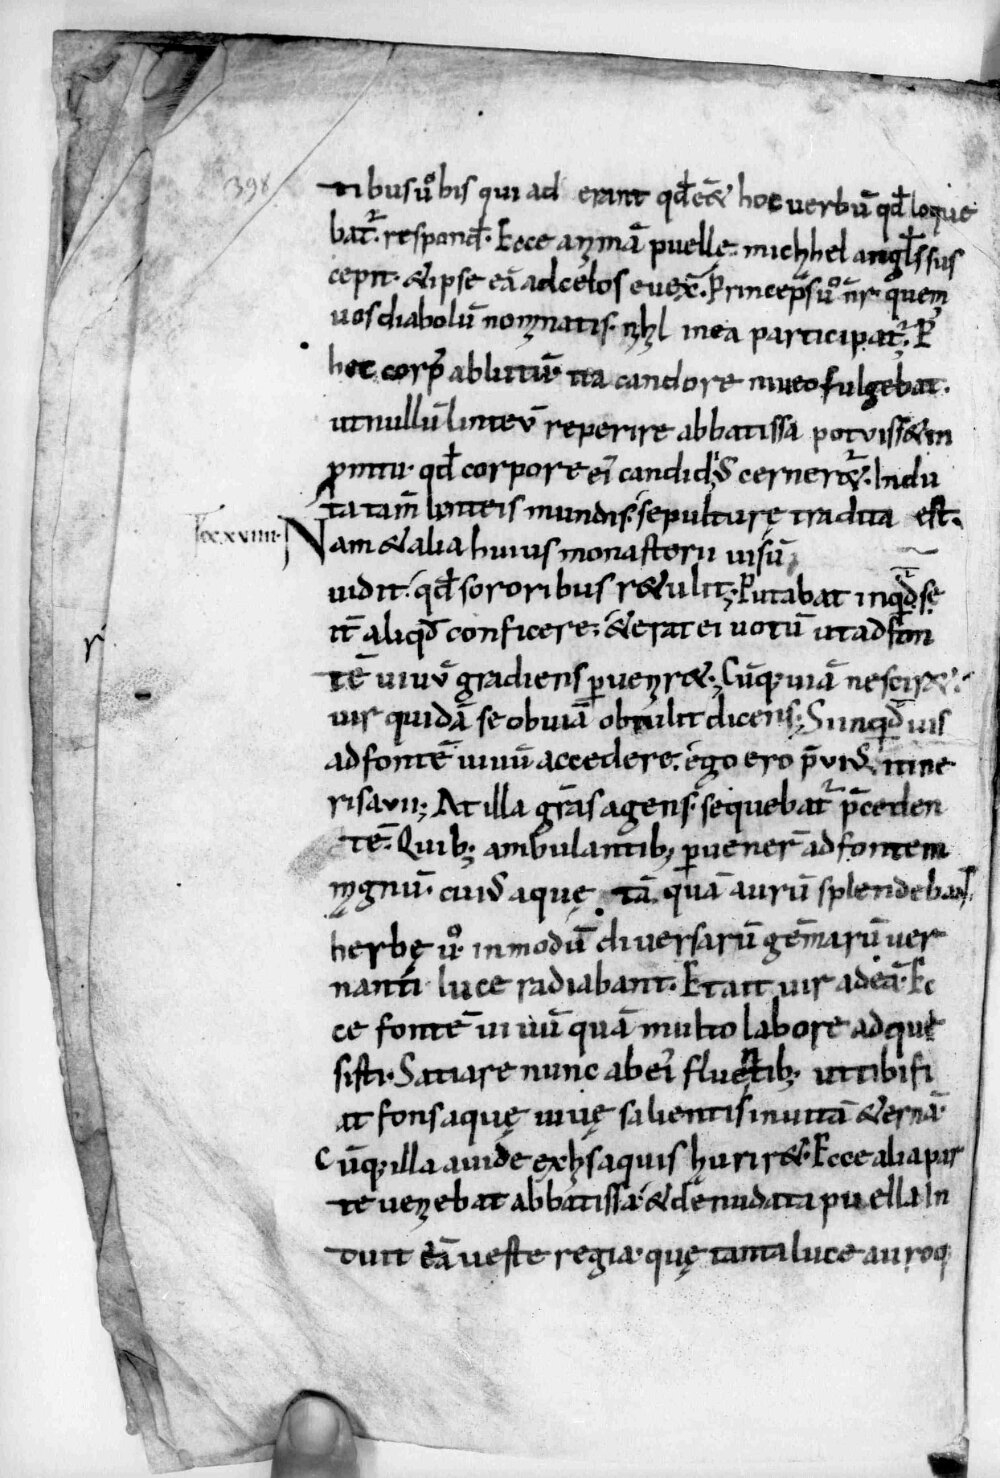 398
tibus ůbis qui ad erant qđ eēt& hoc uerbū qđ loque
bat̄. respond̄. Ecce anımā puellę. michhel angl̄s sus
cepit. & ipse eā ad celos euex̄. Princeps ů nr̄. quem
uos diabolū nomınatis. nıhıl in ea participat̄. P
hec corp̄ ablutū. ita candore niueo fulgebat.
ut nullū linteū reperire abbatissa potuiss& in
promtu. qđ corpore ei candid' cerner&̄. Indu
ta tam̄ linteis mundis. sepulturę tradita est.
xxviiii. Nam & alia huius monasterii uisū
uidit. qđ sororibus r&ulit; Putabat inqđ se
it̄ aliqđ conficere. & erat ei uotū ut ad fon
tē uiuū gradiens puenır&. Cūq; uiā nescir&.
uir quidā se obuiā obtulit dicens; Si inqđ uis
ad fontē uiuū accedere. ego ero p̄uiđ itine
ris a uii; At illa grās agens. sequebat̄ p̄ceden
tē. Quib; ambulantib; puener̄ ad fontem
mıgnū. cuiđ aquę tā quā aurū splendebant.
herbę ů. in modū diuersarū gēmarū uer
nanti luce radiabant. Et ait uir ad eā. Ec
ce fontē uiuū quā multo labore ad que
sisti. Satiare nunc ab ei fluentib; ut tibi fi
at fons aquę uiuę salientis in uitā &ernā.
Cūq; illa auide ex hıs aquis haurir&. Ecce alia par
te uenıebat abbatissa. & denudata puella In
duit eā ueste regia. quę tanta luce auroq;